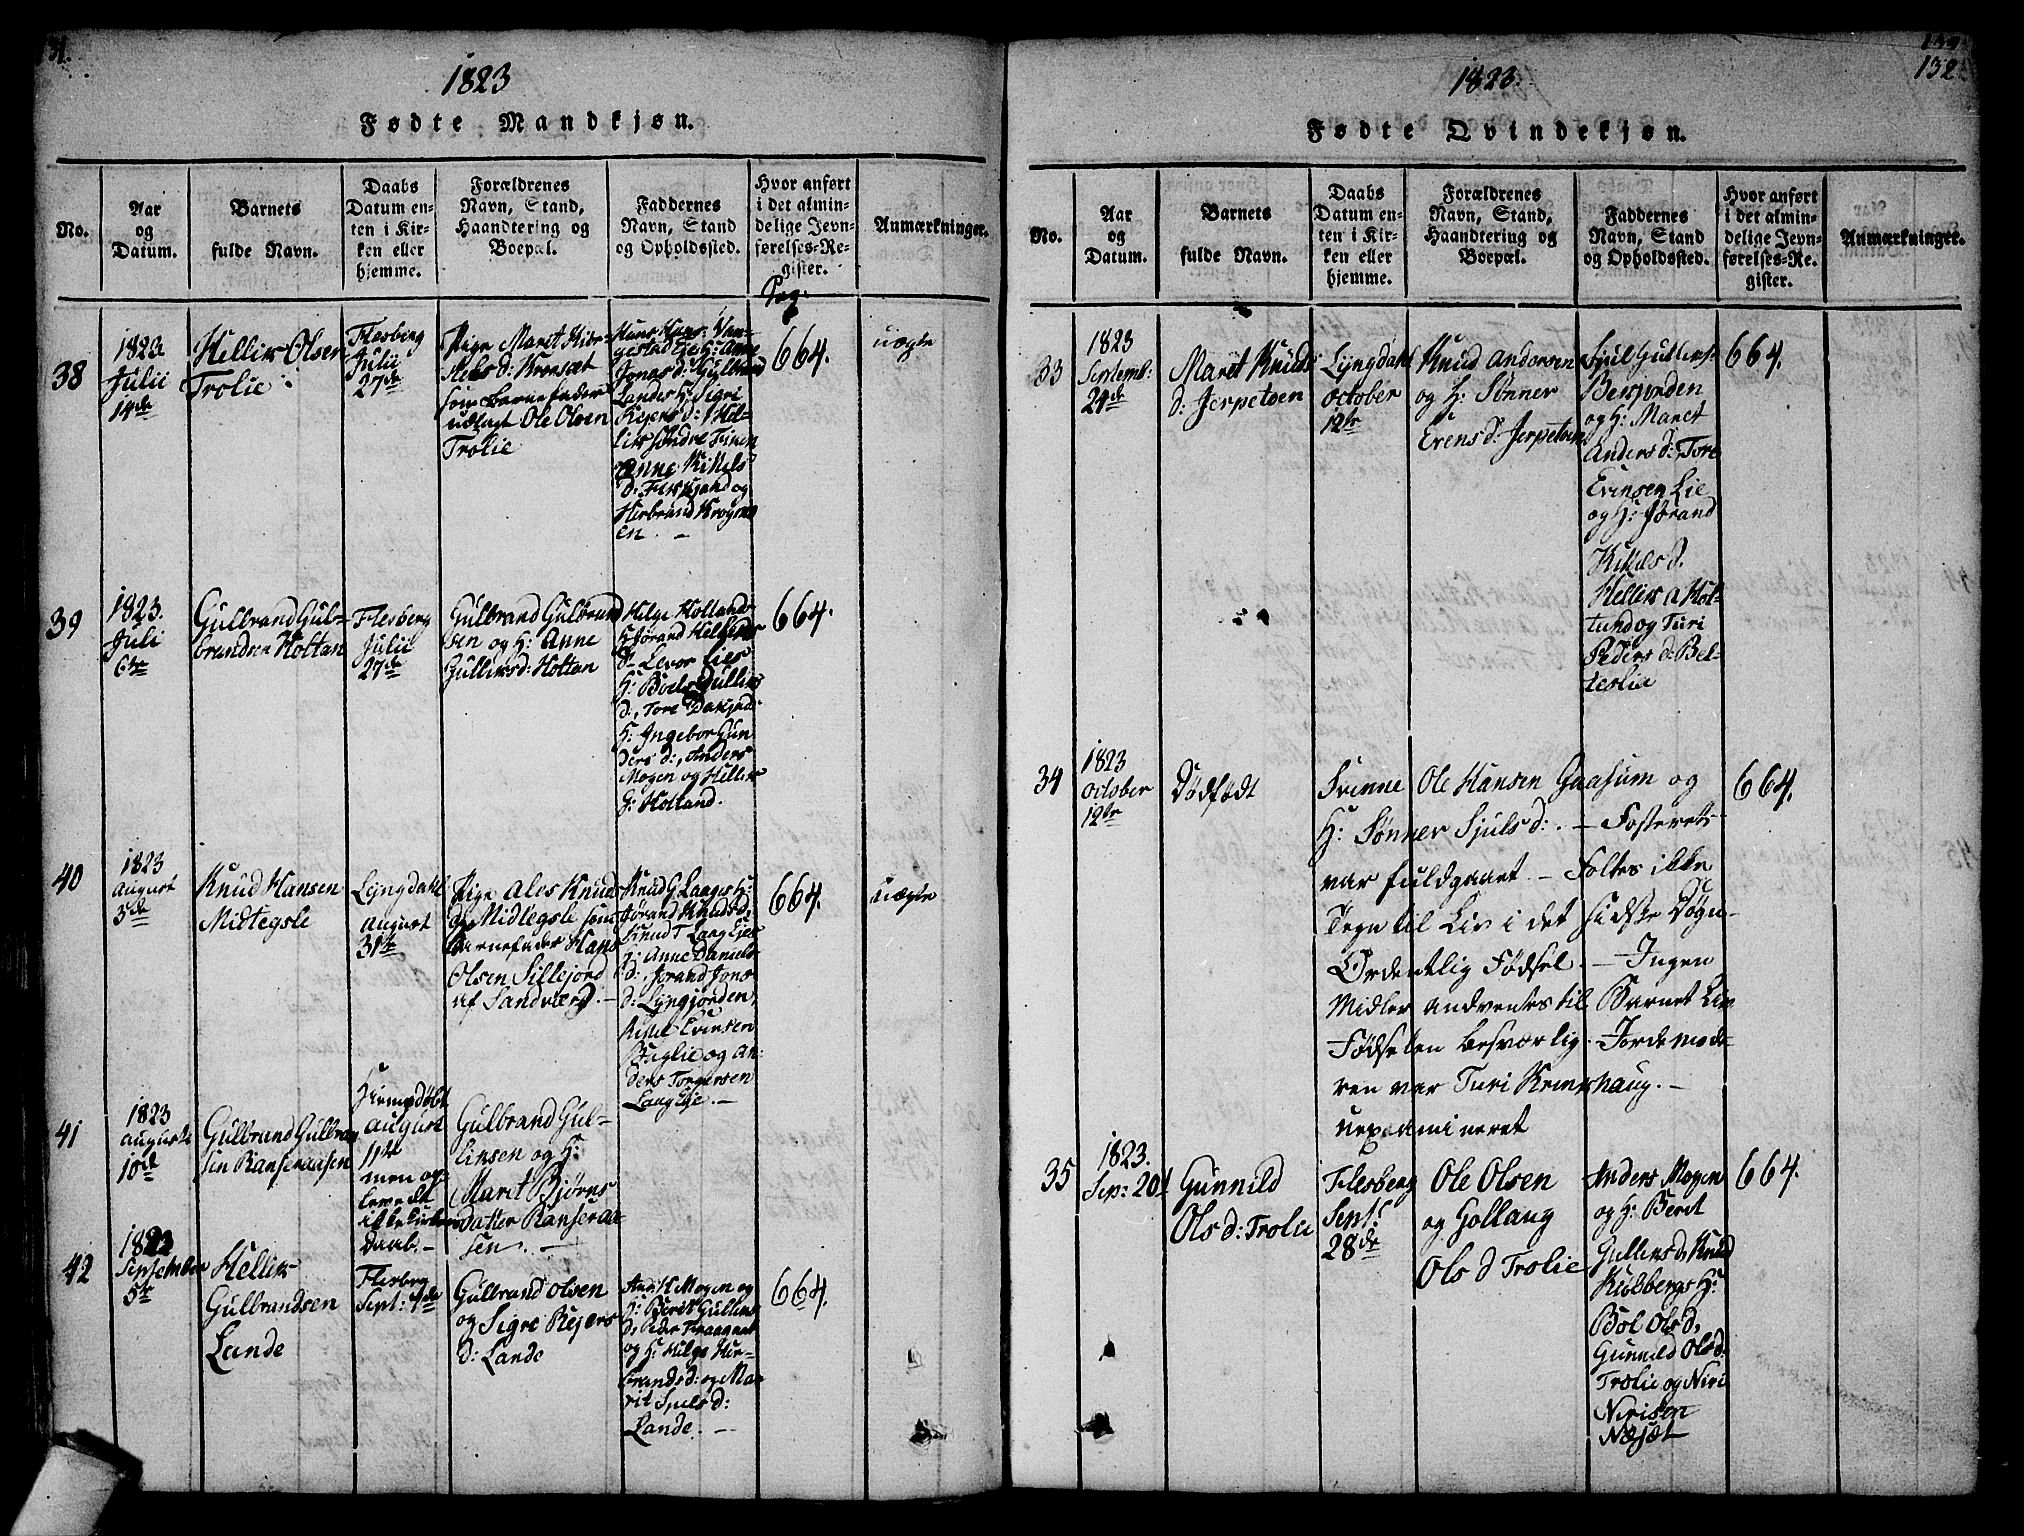 131.
1823
Fødte Mandkjøn.
No.
Aar
og
Datum.
Barnets
fulde Navn.
Daabs
Datum en-
ten i Kir-
ken eller
hjemme.
Forældrenes
Navn, Stand,
Haandtering og
Boepæl.
Faddernes
Navn, Stand
og Opholdssted.
Hvor anført
i det almin-
delige Jevn-
førelses-Re-
gister.
Anmærkninger.
Pag.
38
1823
Julii
14de
Hellik Olsen
Trolie
Flesberg
Julii
27de
Pige Marit
d: Kronsæt
som Barnefader
udlagt Ole Olsen
Trolie
Hans Hans: Van-
gestad
Jonas d: Gulbrand
Landes H: Sigri
Rejers d: Hel-
lik søndre
Anne Kittels
d: og
Herbrand
en. -
664.
uægte
39
1823.
Juli
6te
Gulbrand Gul-
brandsen Hottan
Flesberg
Julii
27de
Gulbrand Gulbrand
sen og H: Anne
Gulliksd: Hottan
Helge Hollands
H: Jørand
d: Levor Lies
H: Boel Gulliks
d:, Tore
H: Ingebor Gun
ders d:, Anders
Mogen og Hellik
G: Hotland.
664.
40
1823
August
3de
Knud Hansen
Midtegsle
Lyngdahl
August
31te
Pige Ales Knuds
d: Midlegsle som
Barnefader Hans
Olsen Sillejord
af Sandværd. -
Knud G Langes H:
Jørand Knudsd:
Knud T Lang Eje
H: Anne Daniels
d:, Jorand Jons
d: Lyngjorden,
Evensen
Buglie og An-
ders Torgersen
Lang Eje. -
664.
uægte
41
1823
Augusti
10de
Gulbrand Gulbran
sen Ranseraasen
Hiemmedøbt
August
11te
men op-
levede
ikke Kirke
daab. -
Gulbrand Gul-
liksen og H:
Marit Bjørns
datter Ranseraa-
sen. -
42
1823
September
5te
Hellik
Gulbrandsen
Lande
Flesberg
Sept: 7de
Gulbrand Olsen
og Sigre Rejers
d: Lande
Mogen og
H: Berit Gulliks
d, Peder Fraagaat
og H: Helge Her-
brandsd: og Ma-
rit Sjuls d:
Lande. -
664.
132
1823.
Fødte Qvindekjøn.
No.
Aar
og
Datum.
Barnets
fulde Navn.
Daabs
Datum en-
ten i Kir-
ken eller
hjemme.
Forældrenes
Navn, Stand,
Haandtering og
Boepæl.
Faddernes
Navn, Stand
og Opholdssted.
Hvor anført
i det almin-
delige Jevn-
førelses-Re-
gister.
Anmærkninger.
33
1823
Septemb:
24de
Maret Knuds
d: Jerpetøen
Lyngdahl
October
12te
Knud Andersen
og H: Sønner
Evens d: Jerpetøen
Sjul Gulliks:
Bersvenden
og H: Maret
Anders d:, Tore
Evensen Lie
og H: Jørand
Kittels d,
Hellik a Hot-
tund og Turi
Peders d: Bel-
teslia
664.
34
1823
October
12te
Dødfødt
Qvinne Ole Hansen Gaasum og
H: Sønner Sjuls d:. - Fosteret
var fuldgaaet. - Føltes ikke
Tegn til Liv i det sidste Døgn. -
Ordentlig Fødsel. - Ingen
Midler andventes til Barnet Liv
Fødselen besværlig. - Jordemode-
ren var Turi haug. -
uexamineret
664.
35
1823.
Sep: 20d
Gunnild
Ols d: Trolie
Flesberg
Sept:
28de
Ole Olsen
og Gollaug
Ols d Trolie
Anders Mogen
og H: Berit
Gulliksd, Knud
Kolbergs H:
Bol Ols d,
Gunnild Ols d:
Trolie og Niri
Nirisen
Næsæt
664.